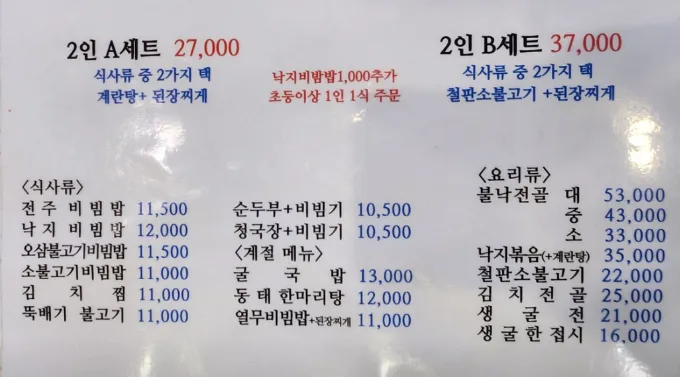 2인 A세트 27,000
식사류 중 2가지 택
계란탕+ 된장찌게
낙지비빔밥1,000추가
초등이상 1인 1식 주문
2인 B세트 37,000
식사류 중 2가지 택
철판소불고기 +된장찌게
〈식사류〉
전주 비빔밥 11,500
낙지 비빔밥 12,000
오삼불고기비빔밥 11,500
소불고기비빔밥 11,000
김치찜 11,000
뚝배기 불고기 11,000
순두부+비빔기 10,500
청국장+비빔기 10,500
〈계절 메뉴〉
굴국밥 13,000
동태한마리탕 12,000
열무비빔밥+된장찌게 11,000
〈요리류〉
불낙전골 대 53,000
중 43,000
소 33,000
낙지볶음(+계란탕) 35,000
철판소불고기 22,000
김치전골 25,000
생굴전 21,000
생굴한접시 16,000